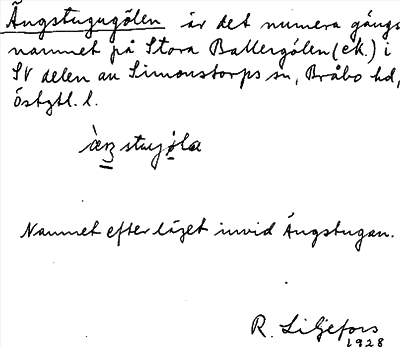 Ängstugugölen är det numera gängs
namnet på Stora Ballergölen (ek.) i
SV delen av Simonstorps sn, Bråbo hd,
östgtl. l.
Namnet efter läget invid Ängstugan.
R. Liljefors
1928